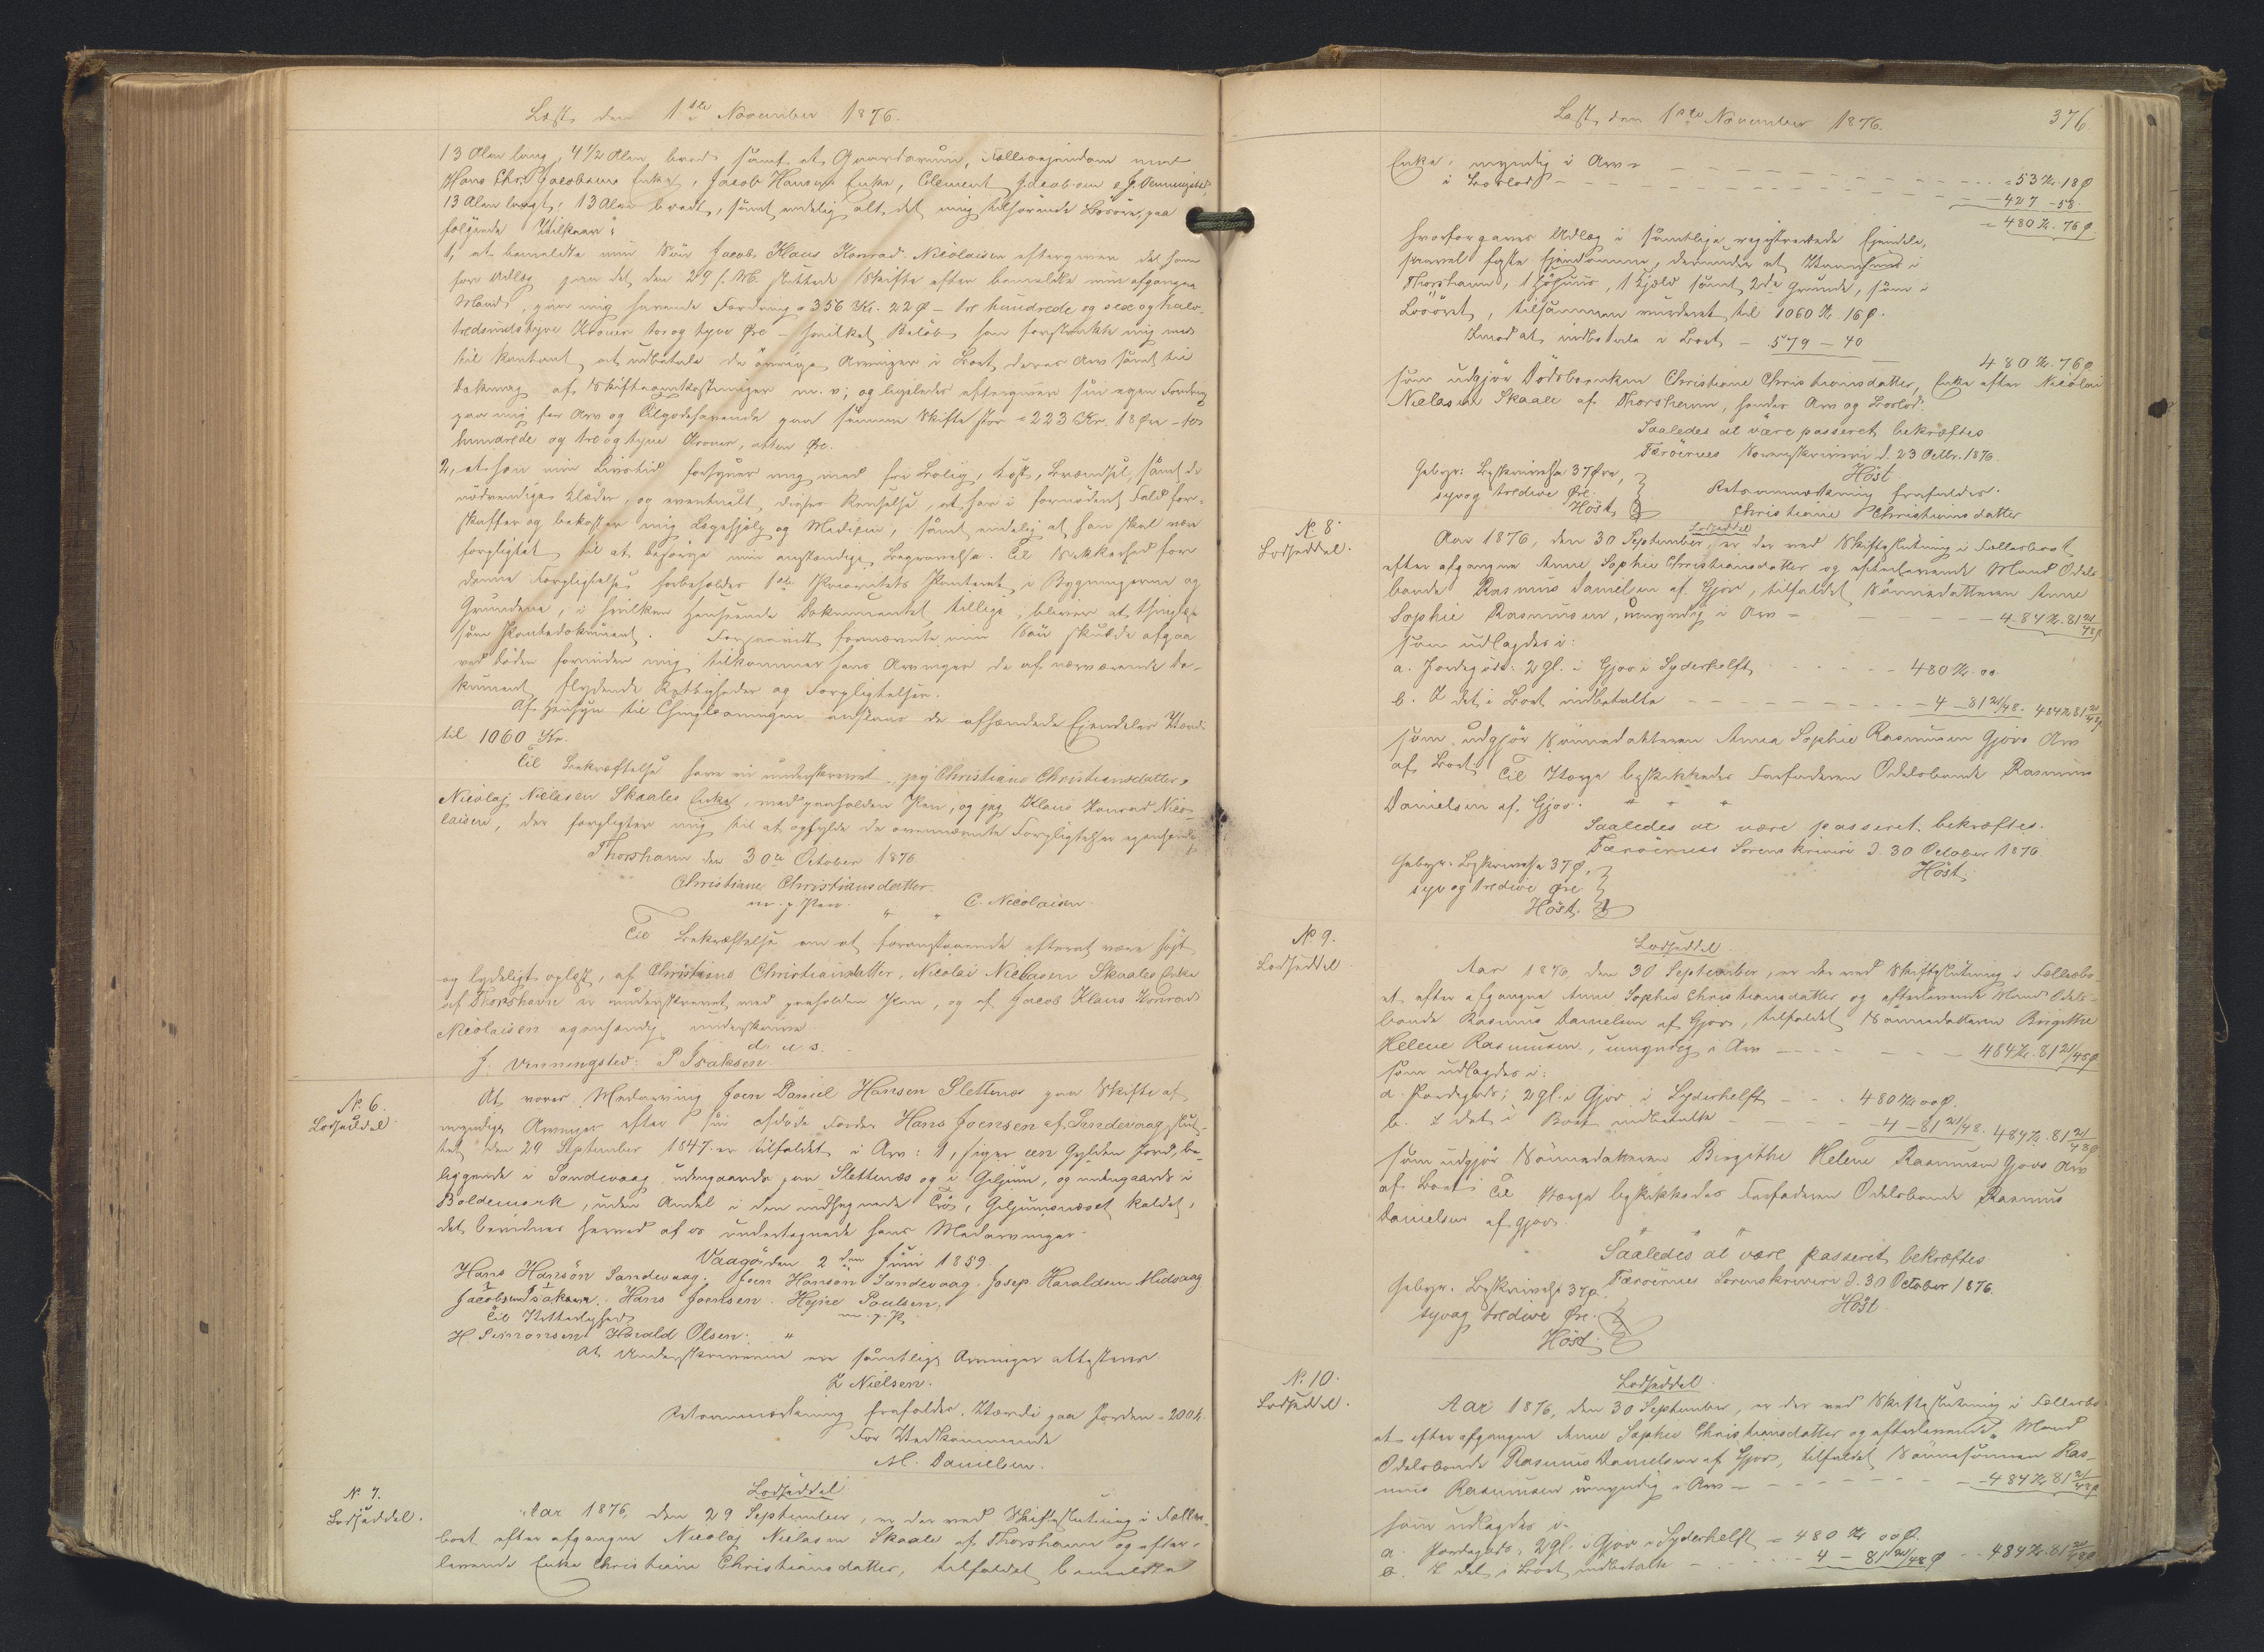 Læst den 1ste November 1876.
13 Alen lang, 4 1/2 Alen bred samt et Gaardsrum, Fælleseiendom med
Hans Chr. Jacobsens Enke, Jacob Hansens Enke, Clement Jacobsen & J. Venningsted
13 Alen langt, 13 Alen bredt, samt endelig alt det mig tilhörende Lösöre, paa
fölgende Vilkaar:
1, at bemeldte min Sön Jacob Klaus Konrad Nicolaisen eftergiver det ham
for Udlæg paa det den 29 f. M. sluttede Skifte efter bemeldte min afgangne
Mand, paa mig havende Fordring = 356 Kr. 22 Ø - tre hundrede og sex og halv-
tredsindstyve Kroner to og tyve Øre - hvilket Belöb han forstrakte mig med
til kontant at udbetale de övrige Arvinger i Boet deres Arv samt til
Dækning af Skifteomkostninger m. v; og ligeledes eftergiver sin egen Fordring
paa mig for Arv og Tilgodehavende paa samme Skifte stor = 223 Kr. 18 Øre - to
hundrede og tre og tyve Kroner, atten Øre.
2, at han min Livstid forsyner mig med fri Bolig, Kost, Brændsel, samt de
nödvendige Klæder, og eventuelt disses Renselse, at han i fornödent Fald for-
skaffer og bekoster mig Lægehjelp og Medicin, samt endelig at han skal være
forpligtet til at besörge min anstændige Begravelse. Til Sikkerhed for
denne Forpligtelse forbeholdes 1ste Prioritets Panteret i Bygningerne og
Grundene, i hvilken Henseende Dokumentet tillige bliver at thinglæse
som Pantedokument. Forsaavidt fornævnte min Sön skulde afgaa
ved Döden forinden mig tilkommer hans Arvinger de af nærværende Do-
kument flydende Rettigheder og Forpligtelser.
Af Hensyn til Thinglæsningen ansættes de afhændede Eiendeles Værdi
til 1060 Kr.
Til Bekræftelse have vi underskrevet, jeg Christiane Christiansdatter,
Nicolaj Nielsen Skaales Enke, med paaholden Pen, og jeg Klaus Konrad Nico-
laisen, der forpligter mig til at opfylde de ovennævnte Forpligtelser egenhændig
Thorshavn den 30te October 1876.
Christiane Christiansdatter.
m. p. Pen. " " C. Nicolaisen.
Til Bekræftelse om at foranstaaende efterat være höjt
og tydeligt oplæst, af Christiane Christiansdatter, Nicolai Nielsen Skaales Enke
af Thorshavn er underskrevet med paaholden Pen, og af Jacob Klaus Konrad
Nicolaisen egenhændig underskrevet
d. u. s.
J. Venningsted. P Isaksen
N. 6.
Lodseddel
At vores Medarving Joen Daniel Hansen Slettenæs paa Skifte af
myndige Arvinger efter sin afdöde Fader Hans Joensen af Sandevaag, slut-
tet den 29 September 1847 er tilfaldet i Arv: 1, siger een Gylden Jord, be-
liggende i Sandevaag udengaards paa Slettenæs og i Giljum, og indengaards i
Böldemark, uden Andel i den indhegnede Trö, Giljumsnæset kaldet,
det bevidnes herved af os undertegnede hans Medarvinger.
Vaagö den 2den Juni 1859.
Hans Hansön Sandevaag. Joen Hansön Sandevaag. Josep Haraldsen Midvaag
Jacob Isaksen. Hans Joensen. Hejne Poulsen,
Til Vitterlighed m. p. P.
H. Simonsen Harald Olsen. "
At Underskriverne ere samtlige Arvinger attesteres
Z Nielsen.
Retsanmærkning frafaldes. Værdi paa Jorden = 200 k.
For Vedkommende
M. Danielsen.
N. 7.
Lodseddel.
Lodseddel
Aar 1876, den 29 September, er der ved Skifteslutning i Fælles-
boet efter afgangne Nicolaj Nielsen Skaale af Thorshavn og efter-
levende Enke Christiane Christiansdatter, tilfaldet bemeldte
Læst den 1ste November 1876. 376
Enke, myndig i Arv = = 53 Kr. 18 Ø
i Boslod - 427 - 58.
= 480 Kr. 76 Ø.
hvorfor gaves Udlæg i samtlige registrerede Eiendele,
saavel faste Eiendomme, derunder et Vaanhuus i
Thorshavn, 1 Höhuus, 1 Hjeld samt 2de Grunde, som i
Lösöret, tilsammen vurderet til 1060 Kr. 16 Ø.
Imod at indbetale i Boet - 579 - 40
480 Kr. 76 Ø
som udgjör Dödsboenken Christiane Christiansdatter, Enke efter Nicolai
Nielsen Skaale af Thorshavn, hendes Arv og Boslod.
Saaledes at være passeret bekræftes
Færöernes Sorenskriveri d. 23 Octbr. 1876.
Höst
Gebyr: Beskrivelse 37 Øre,
syv og tredive Øre.
Höst
Retsanmærkning frafaldes.
Christiane Christiansdatter
N. 8.
Lodseddel.
Lodseddel
Aar 1876, den 30 September, er der ved Skifteslutning i Fællesboet
efter afgangne Anne Sophie Christiansdatter og efterlevende Mand Odels-
bonde Rasmus Danielsen af Gjov, tilfaldet Sönnedatteren Anne
Sophie Rasmusen, umyndig i Arv = 484 Kr. 81 21/48 Ø
som udlagdes i:
a. Jordegods: 2 gl. i Gjov i Syderhelft 480 Kr. 00.
b. I det i Boet indbetalte 4 - 81 21/48. 484 Kr 81 21/48 Ø
som udgjör Sönnedatteren Anna Sophie Rasmusen Gjovs Arv
af Boet. Til Værge beskikkedes Farfaderen Odelsbonde Rasmus
Danielsen af Gjov. " " "
Saaledes at være passeret bekræftes.
Færöernes Sorenskriveri d. 30 October 1876.
Höst.
Gebyr. Beskrivelse 37 Ø,
syv og tredive Øre
Höst.
N. 9.
Lodseddel
Lodseddel.
Aar 1876, den 30 September, er der ved Skifteslutning i Fællesbo-
et efter afgangne Anne Sophie Christiansdatter og efterlevende Mand Odels-
bonde Rasmus Danielsen af Gjov, tilfaldet Sönnedatteren Birgithe
Helene Rasmusen, umyndig i Arv 484 Kr. 81 21/48 Ø
som udlagdes i:
a. Jordegods; 2 gl. i Gjov i Syderhelft - - - 480 Kr 00 Ø.
b. I det i Boet indbetalte 4 - 81 21/48. 484 Kr. 81 21/48 Ø
som udgjör Sönnedatteren Birgithe Helene Rasmusen Gjovs Arv
af Boet. Til Værge beskikkedes Farfaderen Odelsbonde Rasmus
Danielsen af Gjov. " " "
Saaledes at være passeret bekræftes
Færöernes Sorenskriveri d. 30 October 1876.
Höst
Gebyr. Beskrivelse 37 Ø.
syv og tredive Øre.
Höst.
N. 10.
Lodseddel.
Lodseddel.
Aar 1876, den 30 September, er der ved Skifteslutning i Fællesbo-
et efter afgangne Anne Sophie Christiansdatter og efterlevende Mand
Odelsbonde Rasmus Danielsen af Gjov, tilfaldet Sönnesönnen Ras-
mus Rasmusen umyndig i Arv - 484 Kr 81 21/48 Ø
som udlagdes i.
a. Jordegods; 2 gl. i Gjov i Syderhelft = 480 Kr 00 Ø.
b. I det i Boet indbetalte 4 - 81 21/48 Ø - - 484 Kr. 81 21/48 Ø